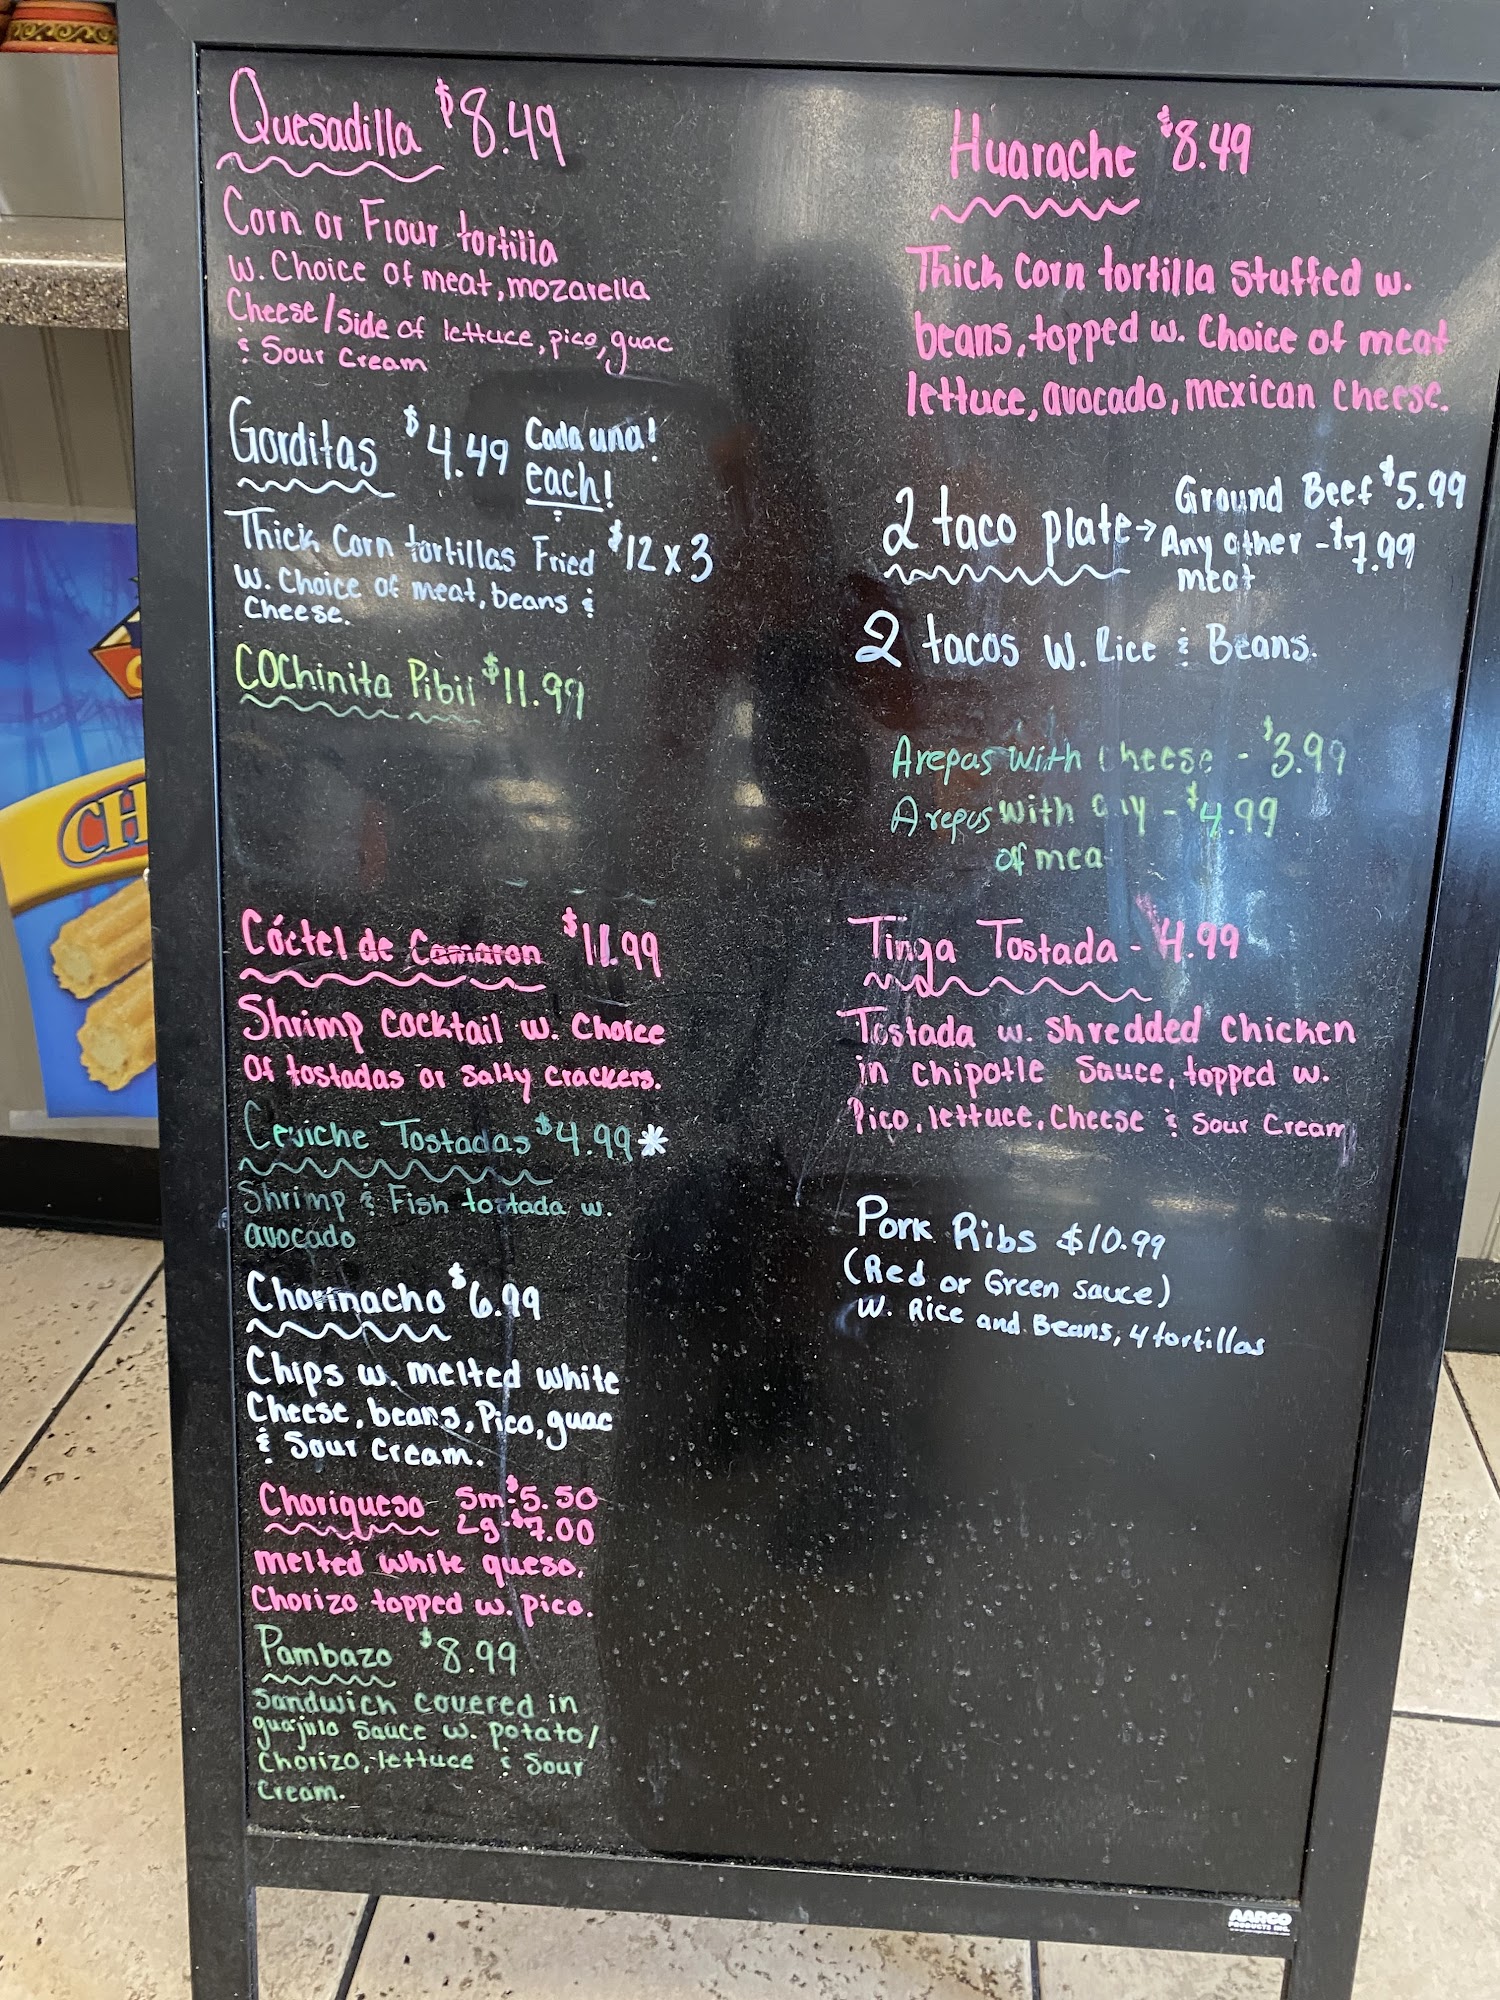 Quesadilla $8.49
Corn or Flour tortilla
w. Choice of meat, mozarella
Cheese/side of lettuce, pico, guac
& Sour Cream
Gorditas $4.49 Cada una!
each!
Thick Corn tortillas Fried $12 x 3
w. Choice of meat, beans &
Cheese.
Cochinita Pibil $11.99
Cóctel de Camaron $11.99
Shrimp Cocktail w. Choice
of tostadas or salty crackers.
Ceviche Tostadas $4.99*
Shrimp & Fish tostada w.
avocado
Chorinacho $6.99
Chips w. melted white
Cheese, beans, Pico, guac
& Sour Cream.
Choriqueso Sm-$5.50
Lg-$7.00
melted white queso,
Chorizo topped w. pico.
Pambazo $8.99
Sandwich covered in
guajillo sauce w. potato/
Chorizo, lettuce & Sour
Cream.
Huarache $8.49
Thick Corn tortilla stuffed w.
beans, topped w. Choice of meat
lettuce, avocado, mexican cheese.
2 taco plate → Ground Beef $5.99
Any other - $7.99
meat
2 tacos w. Rice & Beans.
Arepas with cheese - $3.99
Arepas with any - $4.99
of mea
Tinga Tostada - 4.99
Tostada w. shredded chicken
in chipotle sauce, topped w.
Pico, lettuce, Cheese & Sour Cream
Pork Ribs $10.99
(Red or Green sauce)
w. Rice and Beans, 4 tortillas
CH
AARCO
PRODUCTS INC.